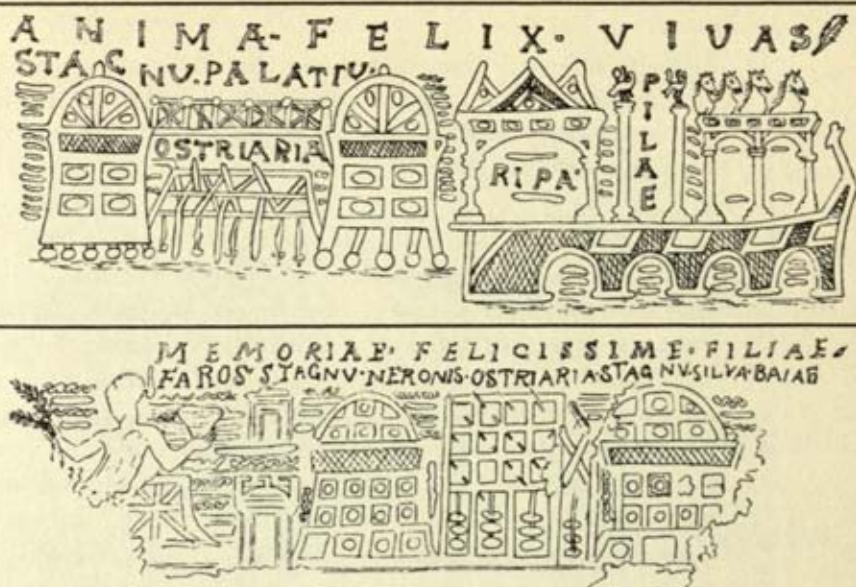 ANIMA·FELIX·VIVAS
STAGNU·PALATIU·
OSTRIARIA
RIPA
PILAE
MEMORIAE·FELICISSIME·FILIAE·
FAROS·STAGNU·NERONIS·OSTRIARIA·STAGNV·SILVA·BAIAE